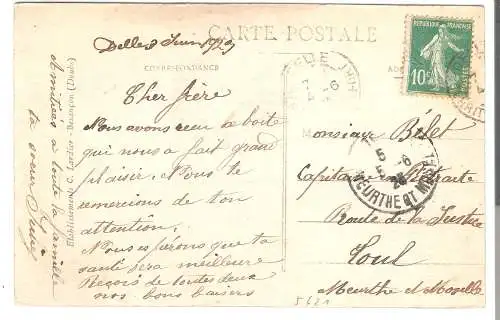 CARTE POSTALE
Delle 9 Juin 1923
CORRESPONDANCE
Cher frère
Nous avons reçu la boite
qui nous a fait grand
plaisir. Nous te
remercions de ton
attention.
Nous espérons que ta
santé sera meilleure
Reçois de toutes deux
nos bons baisers
Amitiés à toute la famille
ta soeur
Etablissements C. Lardier - Besançon (Doubs)
REPUBLIQUE FRANÇAISE
10c
MEURTHE ET M
Monsieur Bélet
Capitaine Retraite
Route de la Justice
Toul
Meurthe et Moselle
5621